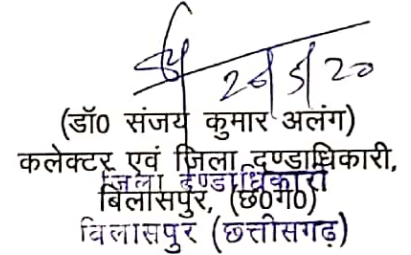 (डॉ0 संजय कुमार अलंग)
कलेक्टर एवं जिला दण्डाधिकारी,
जिला दण्डाधिकारी
बिलासपुर, (छ0ग0)
बिलासपुर (छत्तीसगढ़)